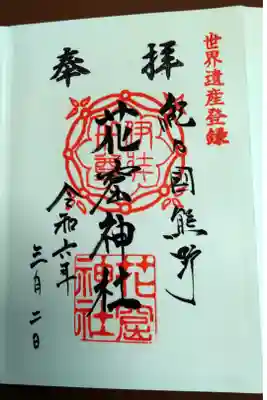 世界遺産登録
奉拝
紀乃國熊野
花窟神社
令和六年
三月二日
花窟神社